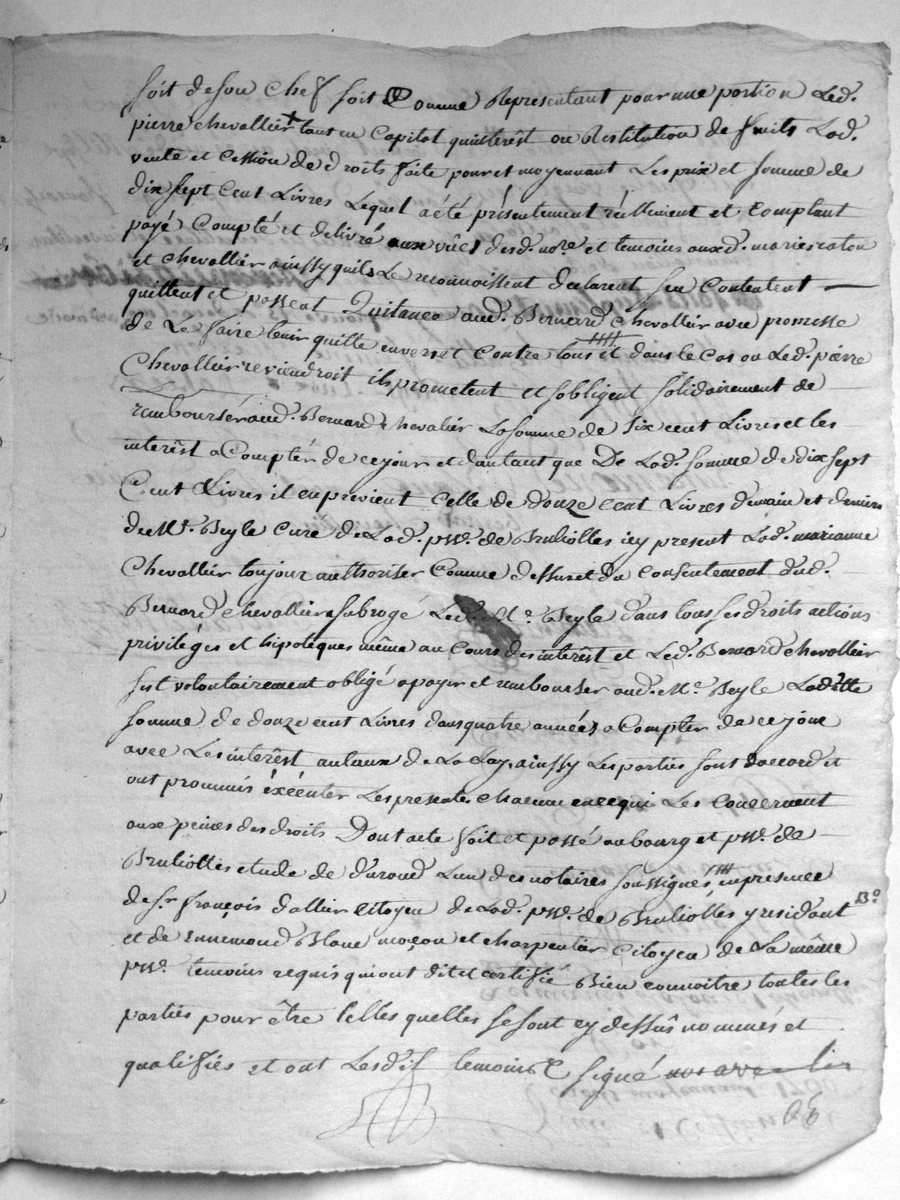 soit de son chef soit comme Representant pour une portion Led.
pierre chevallier + tant en Capital qu'interest ou Restitution de fruits Lad.
vente et cession de droits faite pour et moyennant Les prix et somme de
dix sept cent Livres Lequel a été présentement réellement et Comptant
payé Compté et delivré aux vûes desd. nore. et temoins auxd. maries raton
et chevallier ainssy quils Le reconnoissent declarent sen Contentent
quittent et passent Quitance aud. Bernard chevallier avec promesse
de Le faire tenir quitte envers et Contre tous et dans le cas ou Led. pierre
Chevallier reviendroit ils prometent et sobligent solidairement de
rembourser aud. Bernard chevalier La somme de six cent Livres et les
interêst a Compter de ce jour et d'autant que De Lad. somme de dix sept
Cent Livres il en previent Celle de douze cent Livres demain et deniers
de Mr. Beyle Cure de Lad. psse. de Brullolles icy present Lad. marianne
Chevallier toujour authoriser Comme dessus et du Consentement dud.
Bernard chevallier a subrogé Led. Mr. Beyle dans tous ses droits actions
privilèges et hipoteques même au Cours des interêst et Led. Bernard chevallier
sest volontairement obligé a payer et rembourser aud. Mr. Beyle Laditte
somme de douze cent Livres dans quatre années a Compter de ce jour
avec Les interêst au taux de La Loy, ainssy Les parties sont d'accord et
ont prommis éxécuter Les presentes chacune en ce qui Les Concernent
aux peines des droits Dont acte fait et passé au bourg et psse. de
Brullolles etude de duroud Lun des notaires soussignés, en presence
de sr. françois dallier Citoyen de Lad. psse. de Brullolles y residant
et de Ennemond Blanc maçon et charpentier Citoyen de La même
psse. temoins requis qui ont dit et certifié Bien connoitre toutes les
parties pour être telles quelles se sont cy dessûs nommés et
qualifiés et ont Lesd. temoins signé